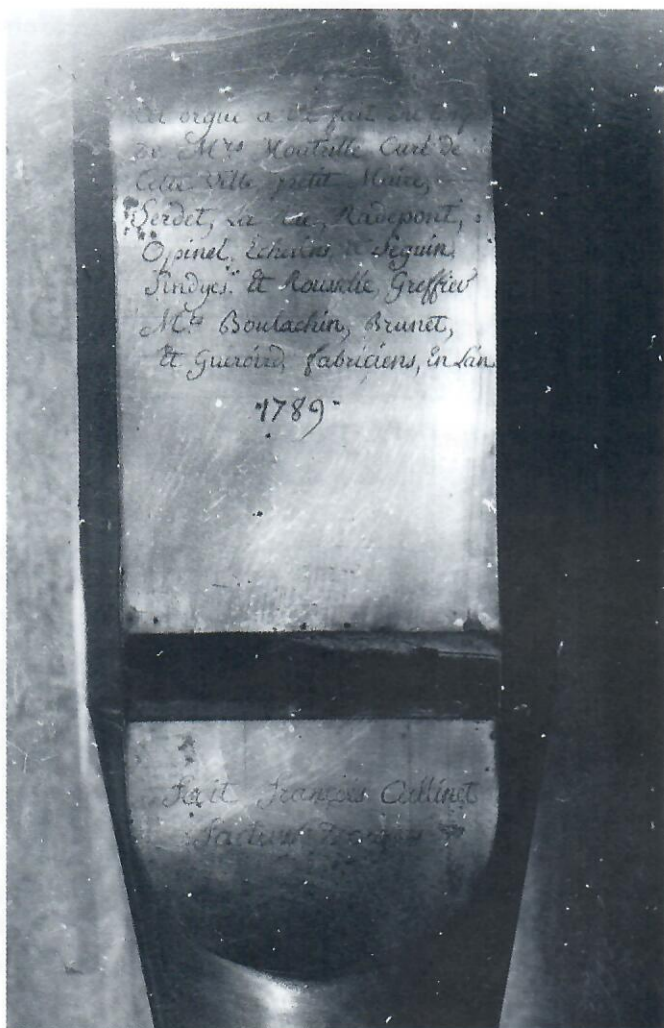 Cet orgue a été fait du
de Mrs Curé de
Cette Ville petit Maire,
Serdet, La Radepont,
Opinel, Echevins, Seguin,
Sindyc. Et Rouselle, Greffier
Mrs Boulachin, Brunet,
Et Guerard, fabriciens, En Lan
1789
Fait François Callinet
facteur